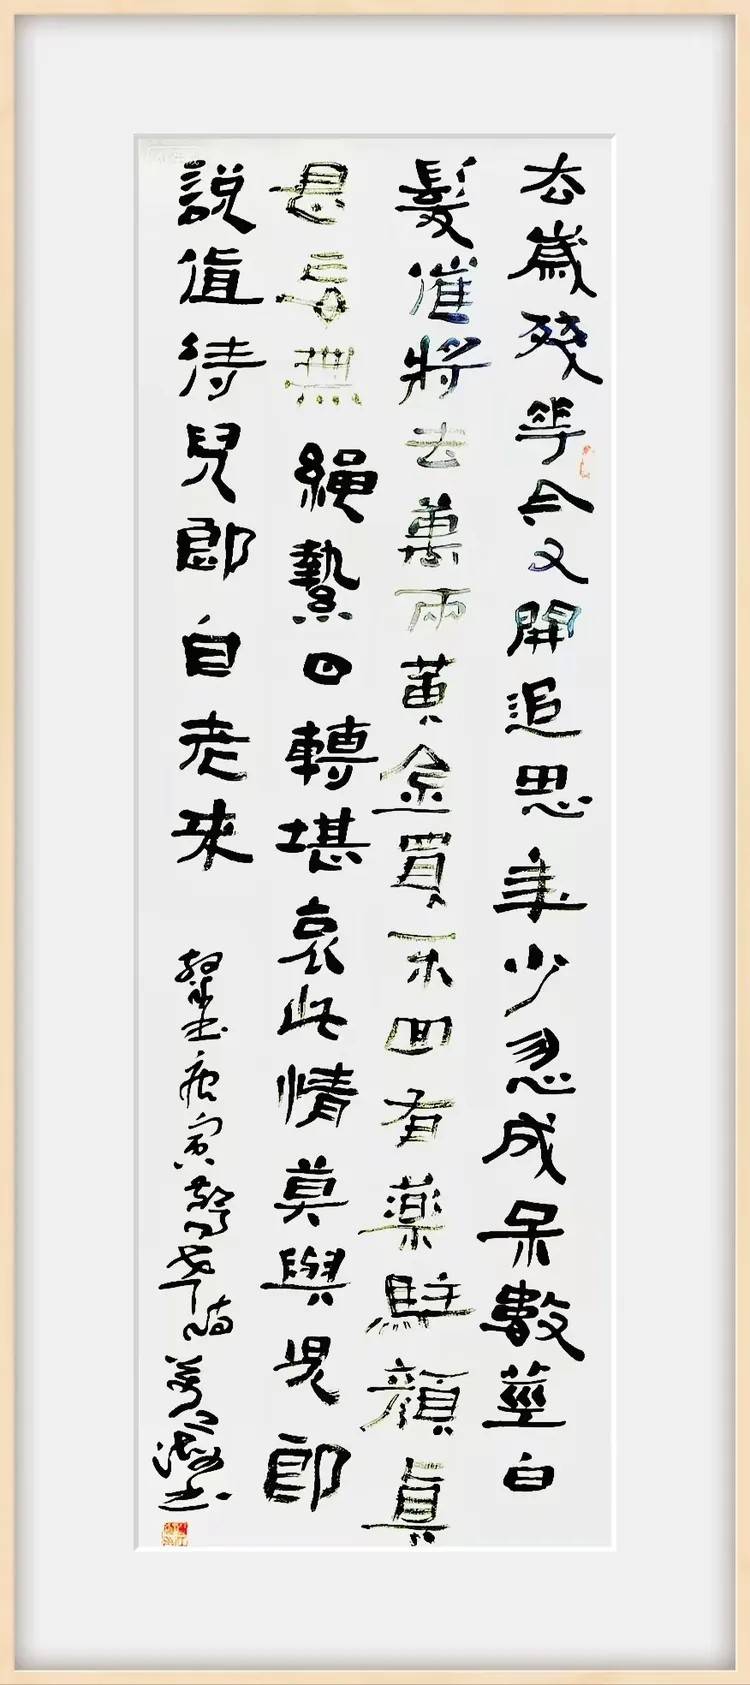 去歲殘華今又開追思年少忽成呆數莖白
髮催將去萬兩黃金買不回有藥駐顏真
是妄無繩縶日轉堪哀此情莫與兒郎
說值待兒郎自老來
書唐寅
書